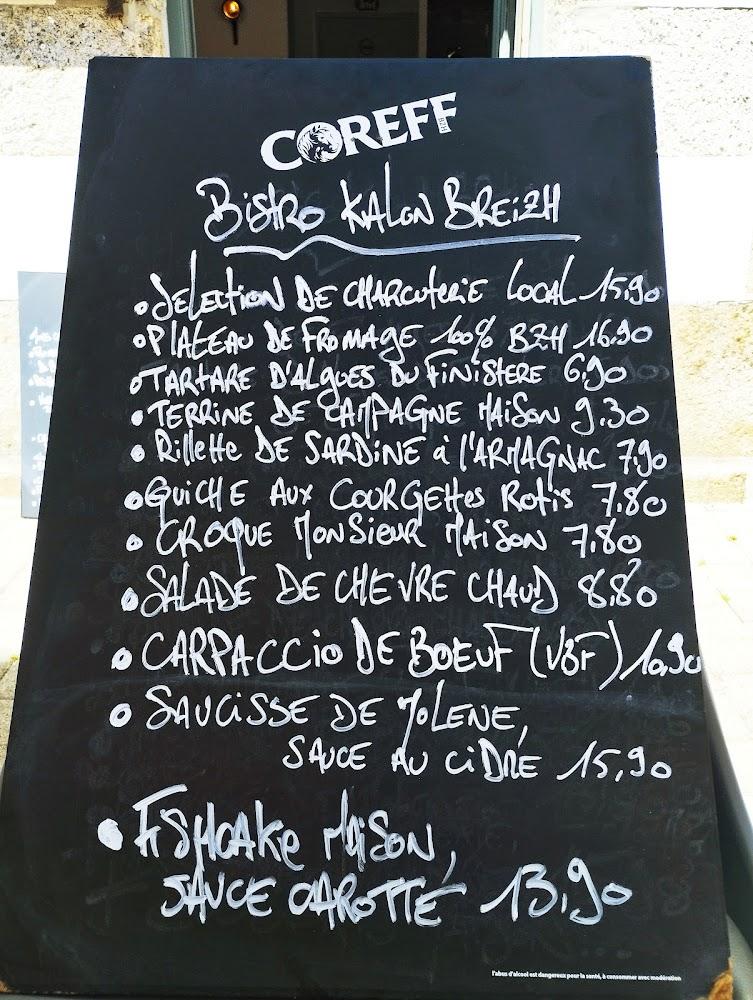 COREFF
BZH
BiSTRO KALON BREiZH
SELECTION DE CHARCUTERiE LOCAL 15,90
PLATEAU DE FROMAGE 100% BZH 16.90
TARTARE D'ALGUES DU FiNiSTERE 6,90
TERRINE DE CAMPAGNE MAiSON 9.30
RilleTTe DE SARDiNE à l'ARMAGNAC 7,90
QUiCHE AUX COURGETTes RoTis 7.80
CROQUE MONSiEUR MAiSON 7.80
SALADE DE CHEVRE CHAUD 8,80
CARPACCiO DE BOEUF (VBF) 10,90
SAUCiSSE DE MOLENE,
SAUCE AU CiDRE 15,90
FiSHCAKe MAiSON,
SAUCE CAROTTE 13,90
l'abus d'alcool est dangereux pour la santé, à consommer avec modération